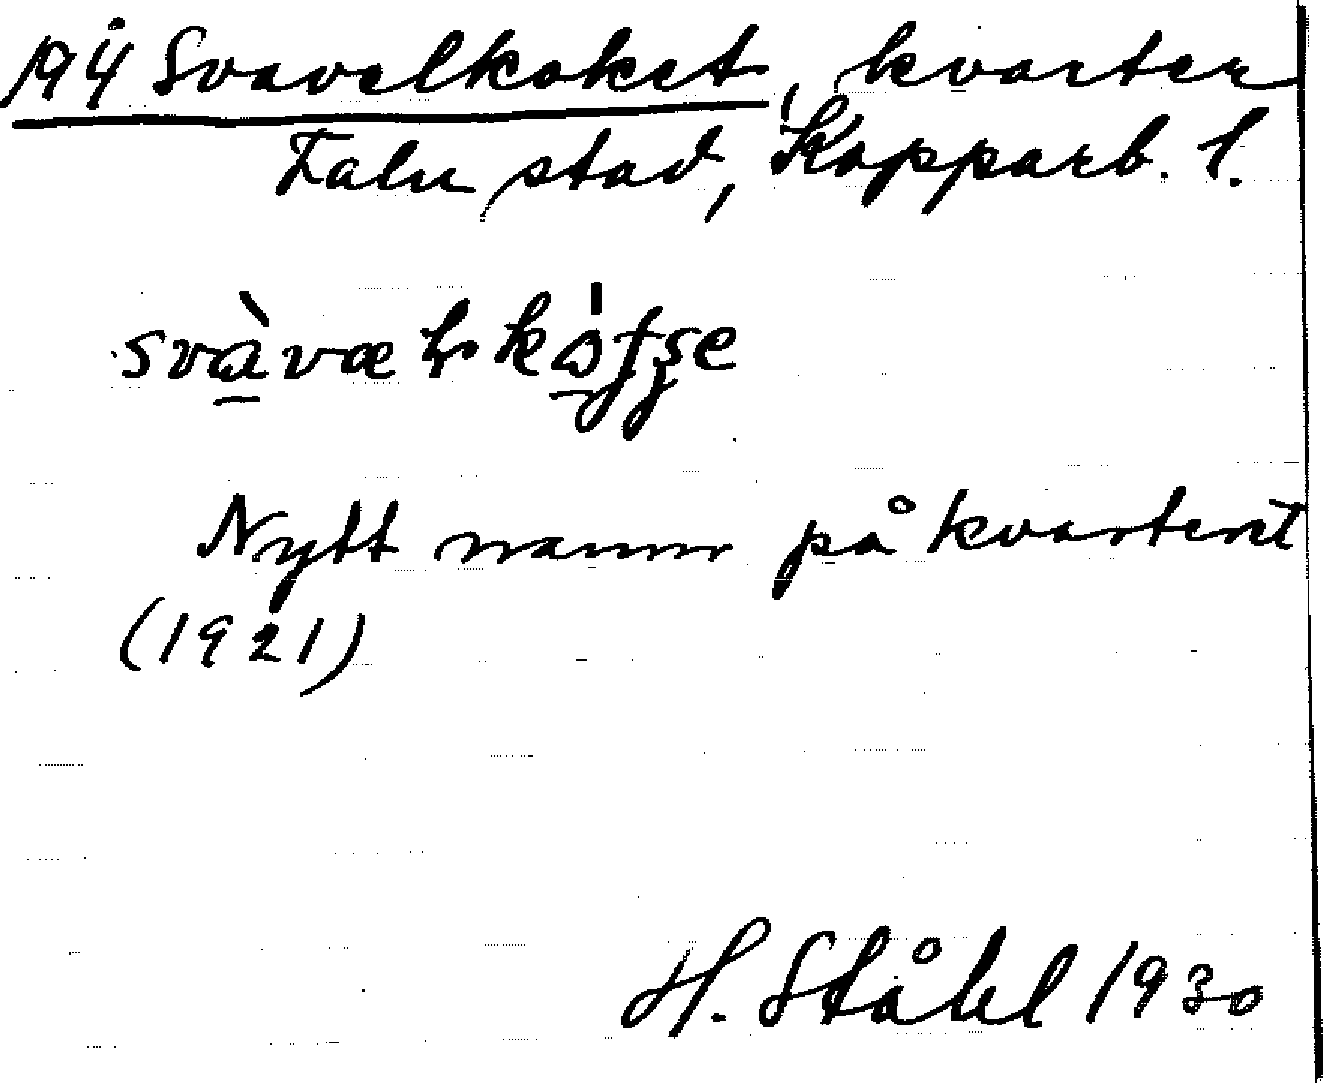 194 Svavelkoket, kvarter
Falu stad, Kopparb. l.
Nytt namn på kvarteret
(1921)
H. Ståhl 1930